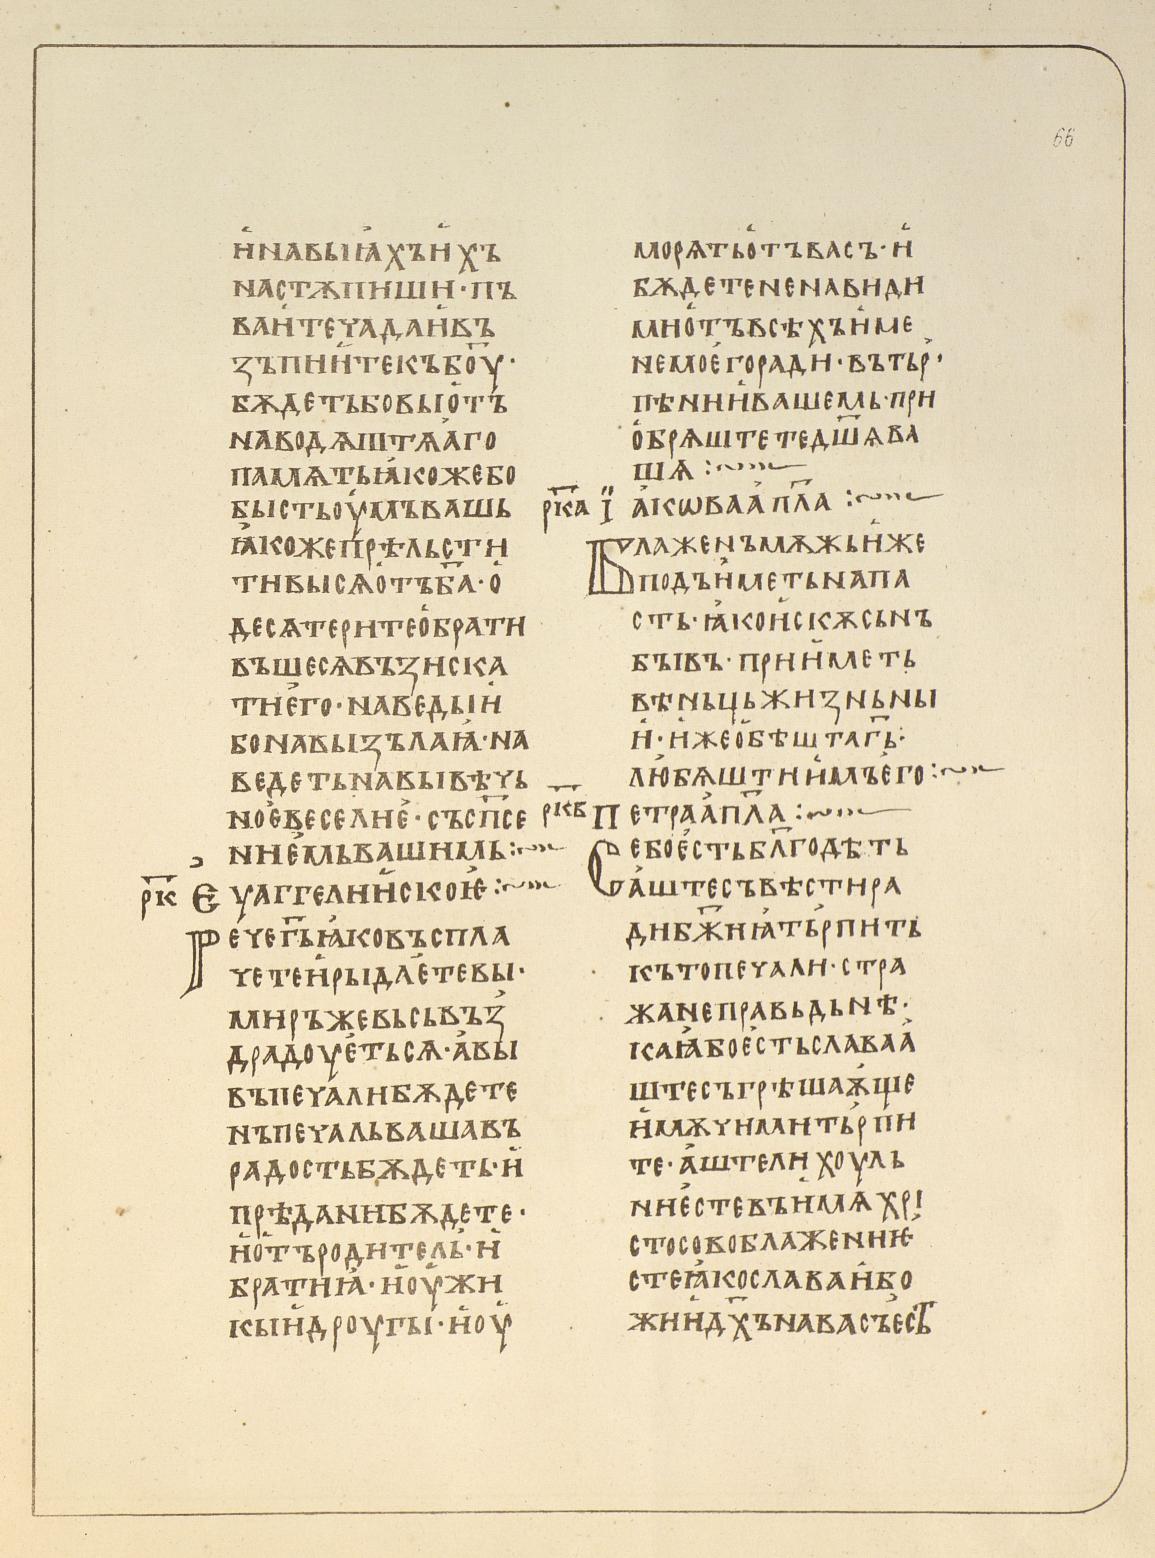 66
и҆набꙑꙗ҆хъи҆хъ
настѫпиши·пъ
ваи҆течадаи҆въ
ꙁъпии҆текъбо҃у·
бѫдетьбовꙑо҆тъ
наводѧштѧа҆го
памѧтьꙗ҆кожебо
бꙑстьоу҆мъвашь
ꙗ҆кожепрѣльсти
тивꙑсѧо҆тъба҃·о҆
десѧтеритео҆брати
въшесѧвъꙁиска
тие҆го·наведꙑи҆
бонавꙑꙁълаꙗ҆·на
ведетьнавꙑвѣчь
ное҆веселие҆·съсп҃се
ние҆мьвашимь:~
рк҃ Єуаггелии҆скоѥ:~
Рече҆г҃ьꙗ҆ковъспла
четеи҆рꙑдае҆тевꙑ·
миръжевьсьвъꙁ
драдоуе҆тьсѧ·а҆вꙑ
въпечалибѫдете
нъпечальвашавъ
радостьбѫдеть·и҆
прѣданибѫдете·
и҆о҆търодитель·и҆
братиꙗ҆·и҆оу҆жи
кꙑи҆дроугꙑ·и҆оу҆
морѧтьо҆тъвасъ·и҆
бѫдетененавиди
мио҆тъвсѣхъи҆ме
немое҆горади·вътьр҆·
пѣнии҆вашемь·при
о҆брѧштетедш҃ѧва
шѧ:~
рк҃а Ї а҆кѡваа҆п҃ла:~
Блаженъмѫжьи҆же
подъи҆метьнапа
сть·ꙗ҆кои҆скѫсьнъ
бꙑвъ·прии҆меть
вѣньцьжиꙁньнꙑ
и҆·и҆жео҆бѣштаг҃ь·
лю҆бѧштии҆мъе҆го:~
рк҃в Петраа҆п҃ла:~
Себое҆стьбл҃годѣть
а҆штесъвѣстира
дибж҃иꙗ҆тьрпить
къто҆печали·стра
жанеправьдьнѣ·
каꙗ҆бое҆стьславаа҆
штесъгрѣшаѭ҆ще
и҆мѫчимитьрпи
те·а҆штелихоуль
ние҆стевъи҆мѧхрı
стосовоблажениѥ
стеꙗ҆кославаи҆бо
жии҆дх҃ънавасъе҆ст҃ь